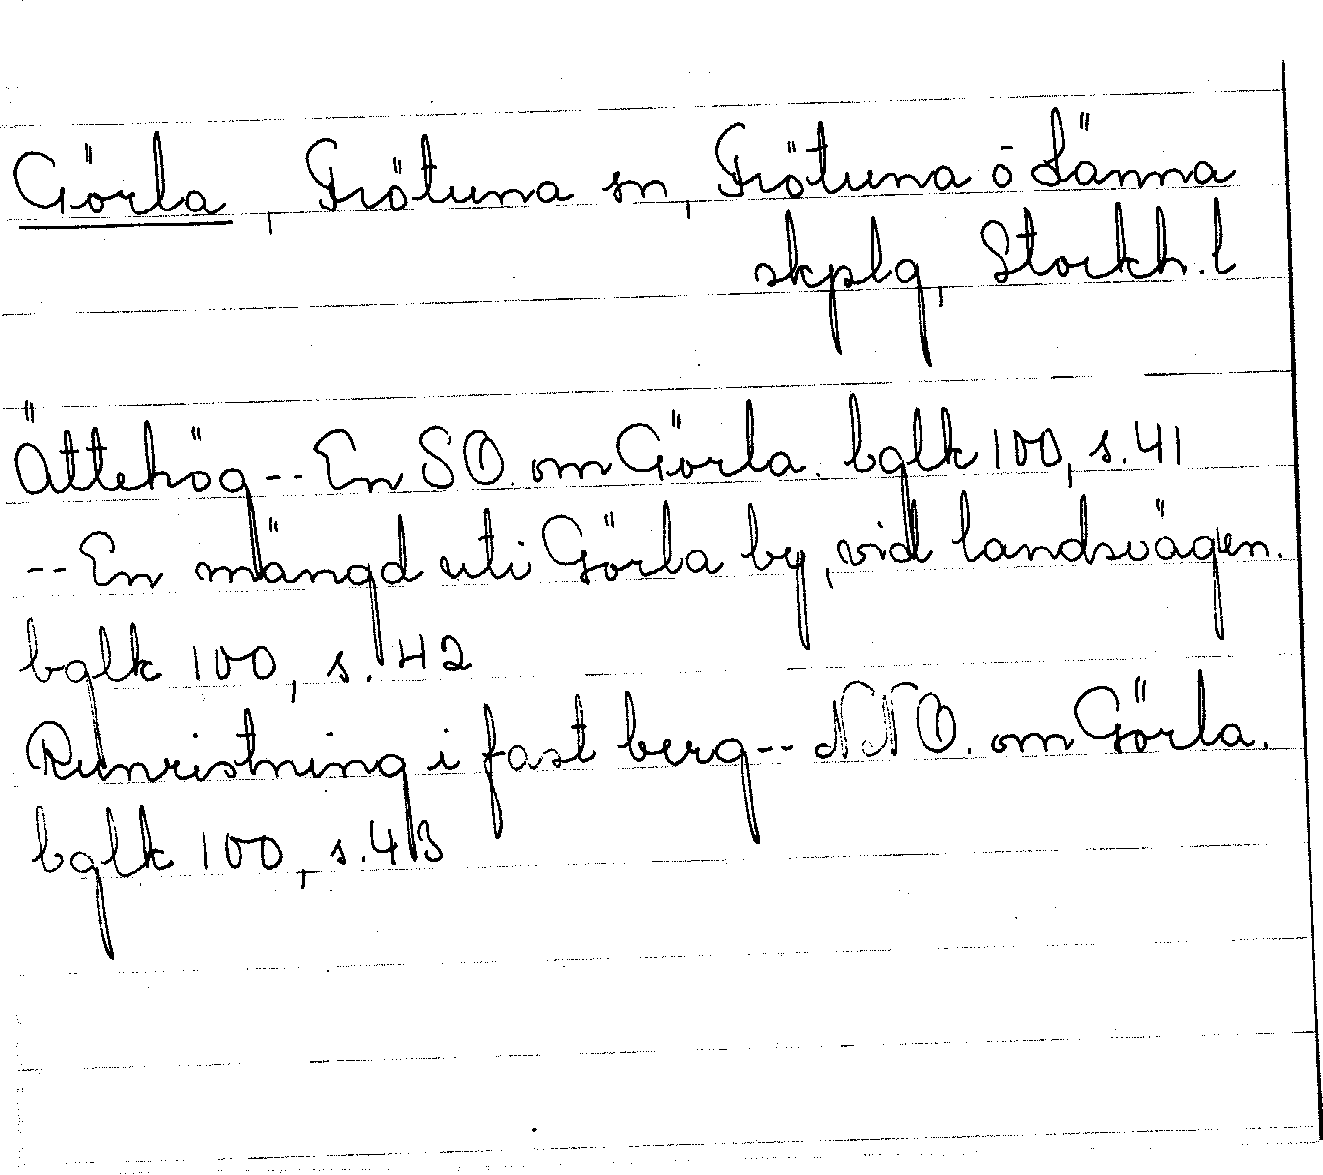 Görla, Frötuna sn, Frötuna ō Länna
skplg, Stockh. l
Ättehög -- En SO. om Görla. bglk 100, s. 41
-- En mängd uti Görla by, vid landsvägen.
bglk 100, s. 42
Runristning i fast berg -- NNO. om Görla.
bglk 100, s. 43